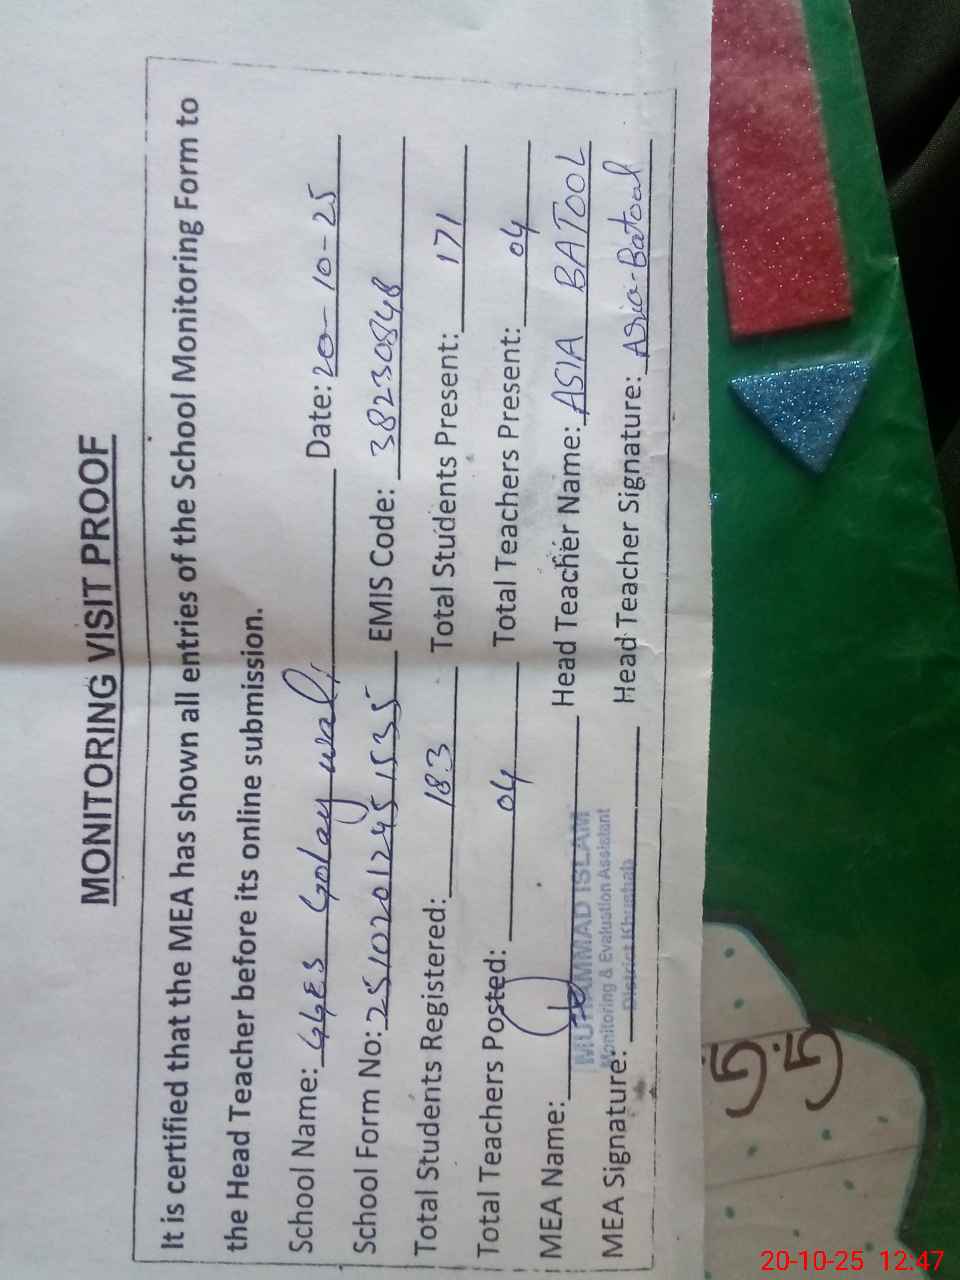 MONITORING VISIT PROOF
It is certified that the MEA has shown all entries of the School Monitoring Form to
the Head Teacher before its online submission.
School Name: GGES Golay wali Date: 20-10-25
School Form No: 25102012451535 EMIS Code: 38230848
Total Students Registered: 183 Total Students Present: 171
Total Teachers Posted: 04 Total Teachers Present: 04
MEA Name: Head Teacher Name: ASIA BATOOL
MUHAMMAD ISLAM
Monitoring & Evaluation Assistant
District Khushab
MEA Signature: Head Teacher Signature: Asia-Batool
20-10-25 12:47